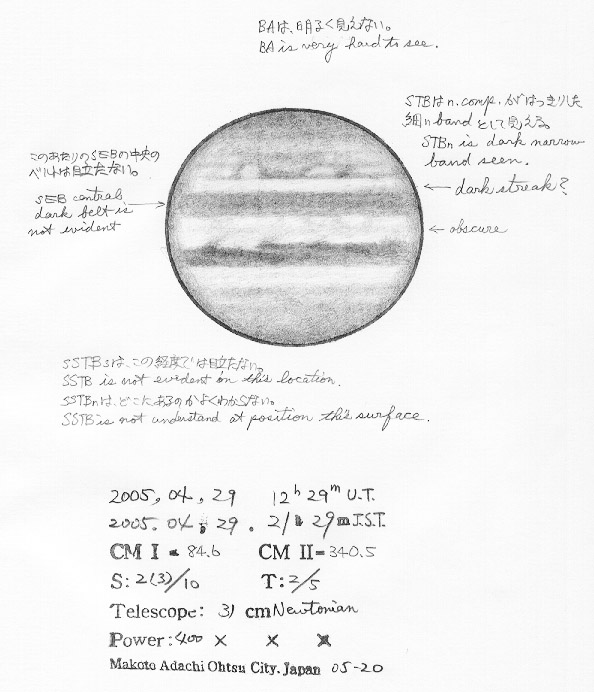 BAは、明るく見えない。
BA is very hard to see.
STBはn.comp.がはっきりした
細いbandとして見える。
STBn is dark narrow
band seen.
← dark streak?
← obscure
このあたりのSEBの中央の
ベルトは目立たない。
SEB central
dark belt is →
not evident
SSTBsは、この経度では目立たない。
SSTB is not evident on this location.
SSTBnは、どこにあるのかよくわからない。
SSTB is not understand at position this surface.
2005, 04, 29 12h 29m U.T.
2005. 04, 29. 21h 29m J.S.T.
CM I = 84.6 CM II= 340.5
S: 2(3)/10 T: 2/5
Telescope: 31 cm Newtonian
Power: 400 × × ×
Makoto Adachi Ohtsu City. Japan 05-20